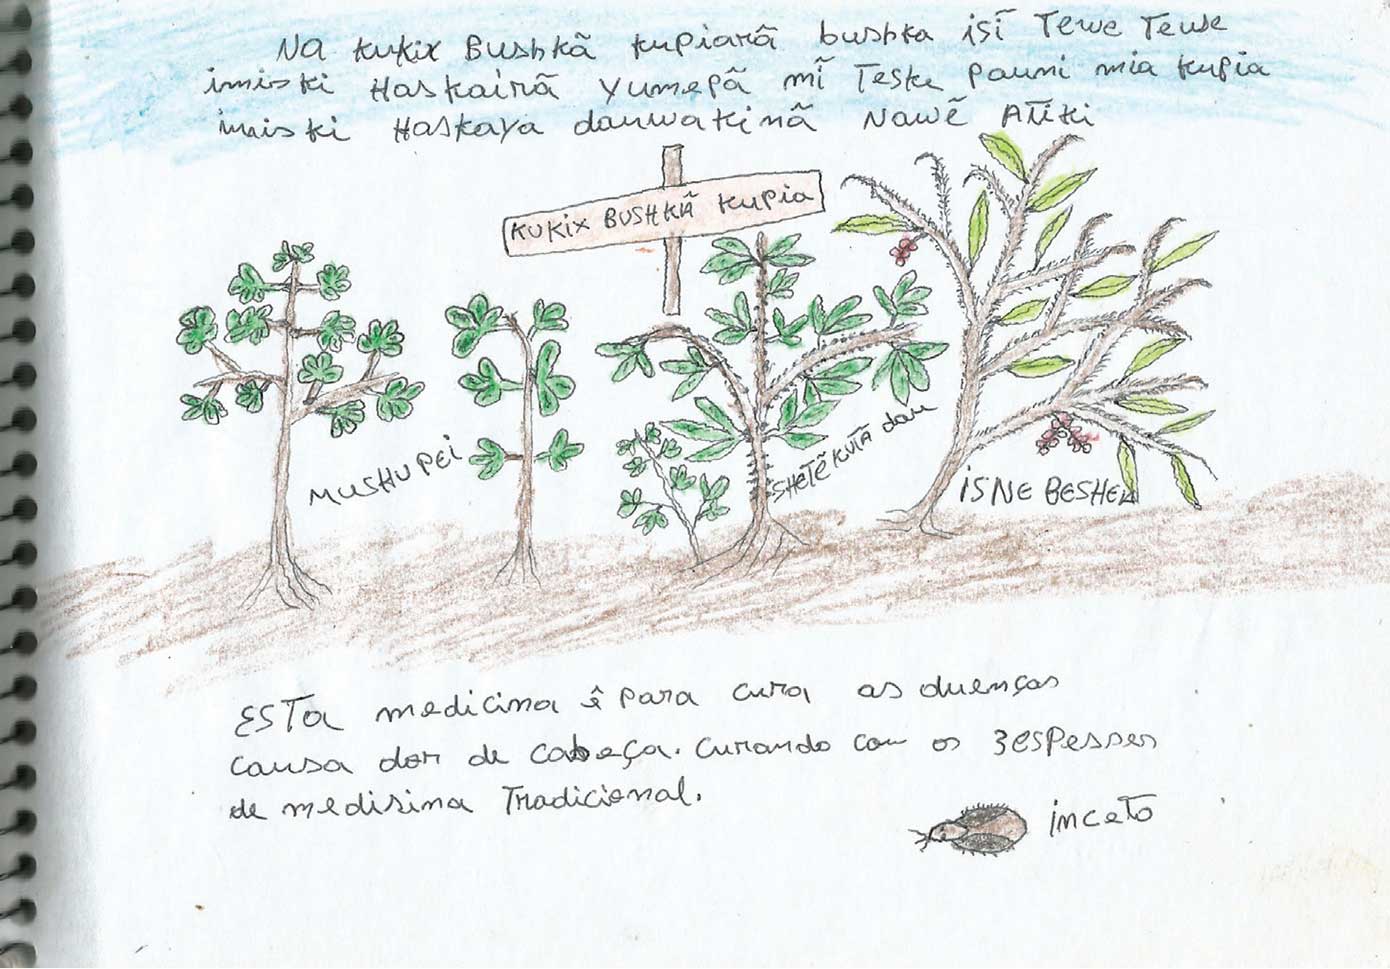 NA KUKIX BUSHKÃ KUPIARÃ bushka isĩ Tewe Tewe
imiski HasKairã yumepã mĩ Teske pauni mia kupia
imiski HasKaya dauwakinã Nawẽ Atiki
KUKIX BUSHKÃ KUPIA
MUSHU PEI
SHETẼ KUIÃ dau
iSNE BESHEA
ESTA medicina ê para cura as duenças
causa dor de cabeça. curando com os 3 espesses
de medisina Tradicional.
inceto